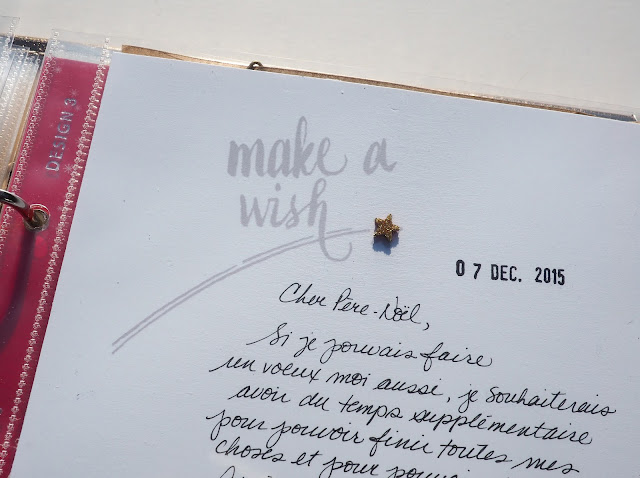 DESIGN 3
make a
wish
07 DEC. 2015
Cher Père-Noël,
Si je pouvais faire
un voeux moi aussi, je souhaiterais
avoir du temps supplémentaire
pour pouvoir finir toutes mes
choses et pour